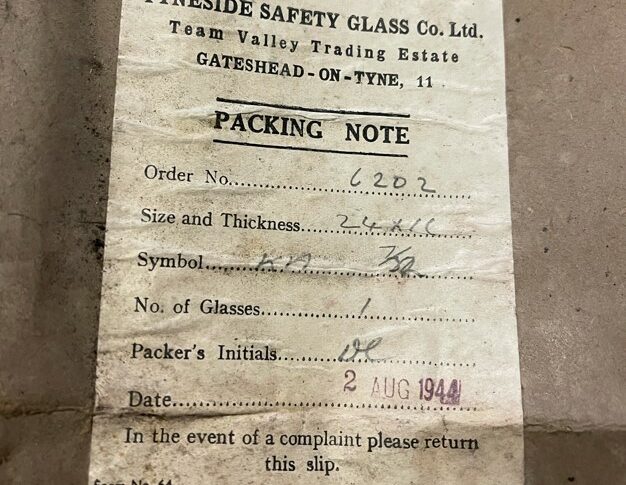 TYNESIDE SAFETY GLASS Co. Ltd.
Team Valley Trading Estate
GATESHEAD-ON-TYNE, 11
PACKING NOTE
Order No. 6202
Size and Thickness 24 x
Symbol 7/32
No. of Glasses 1
Packer's Initials
Date 2 AUG 1944
In the event of a complaint please return
this slip.
Form No. 64